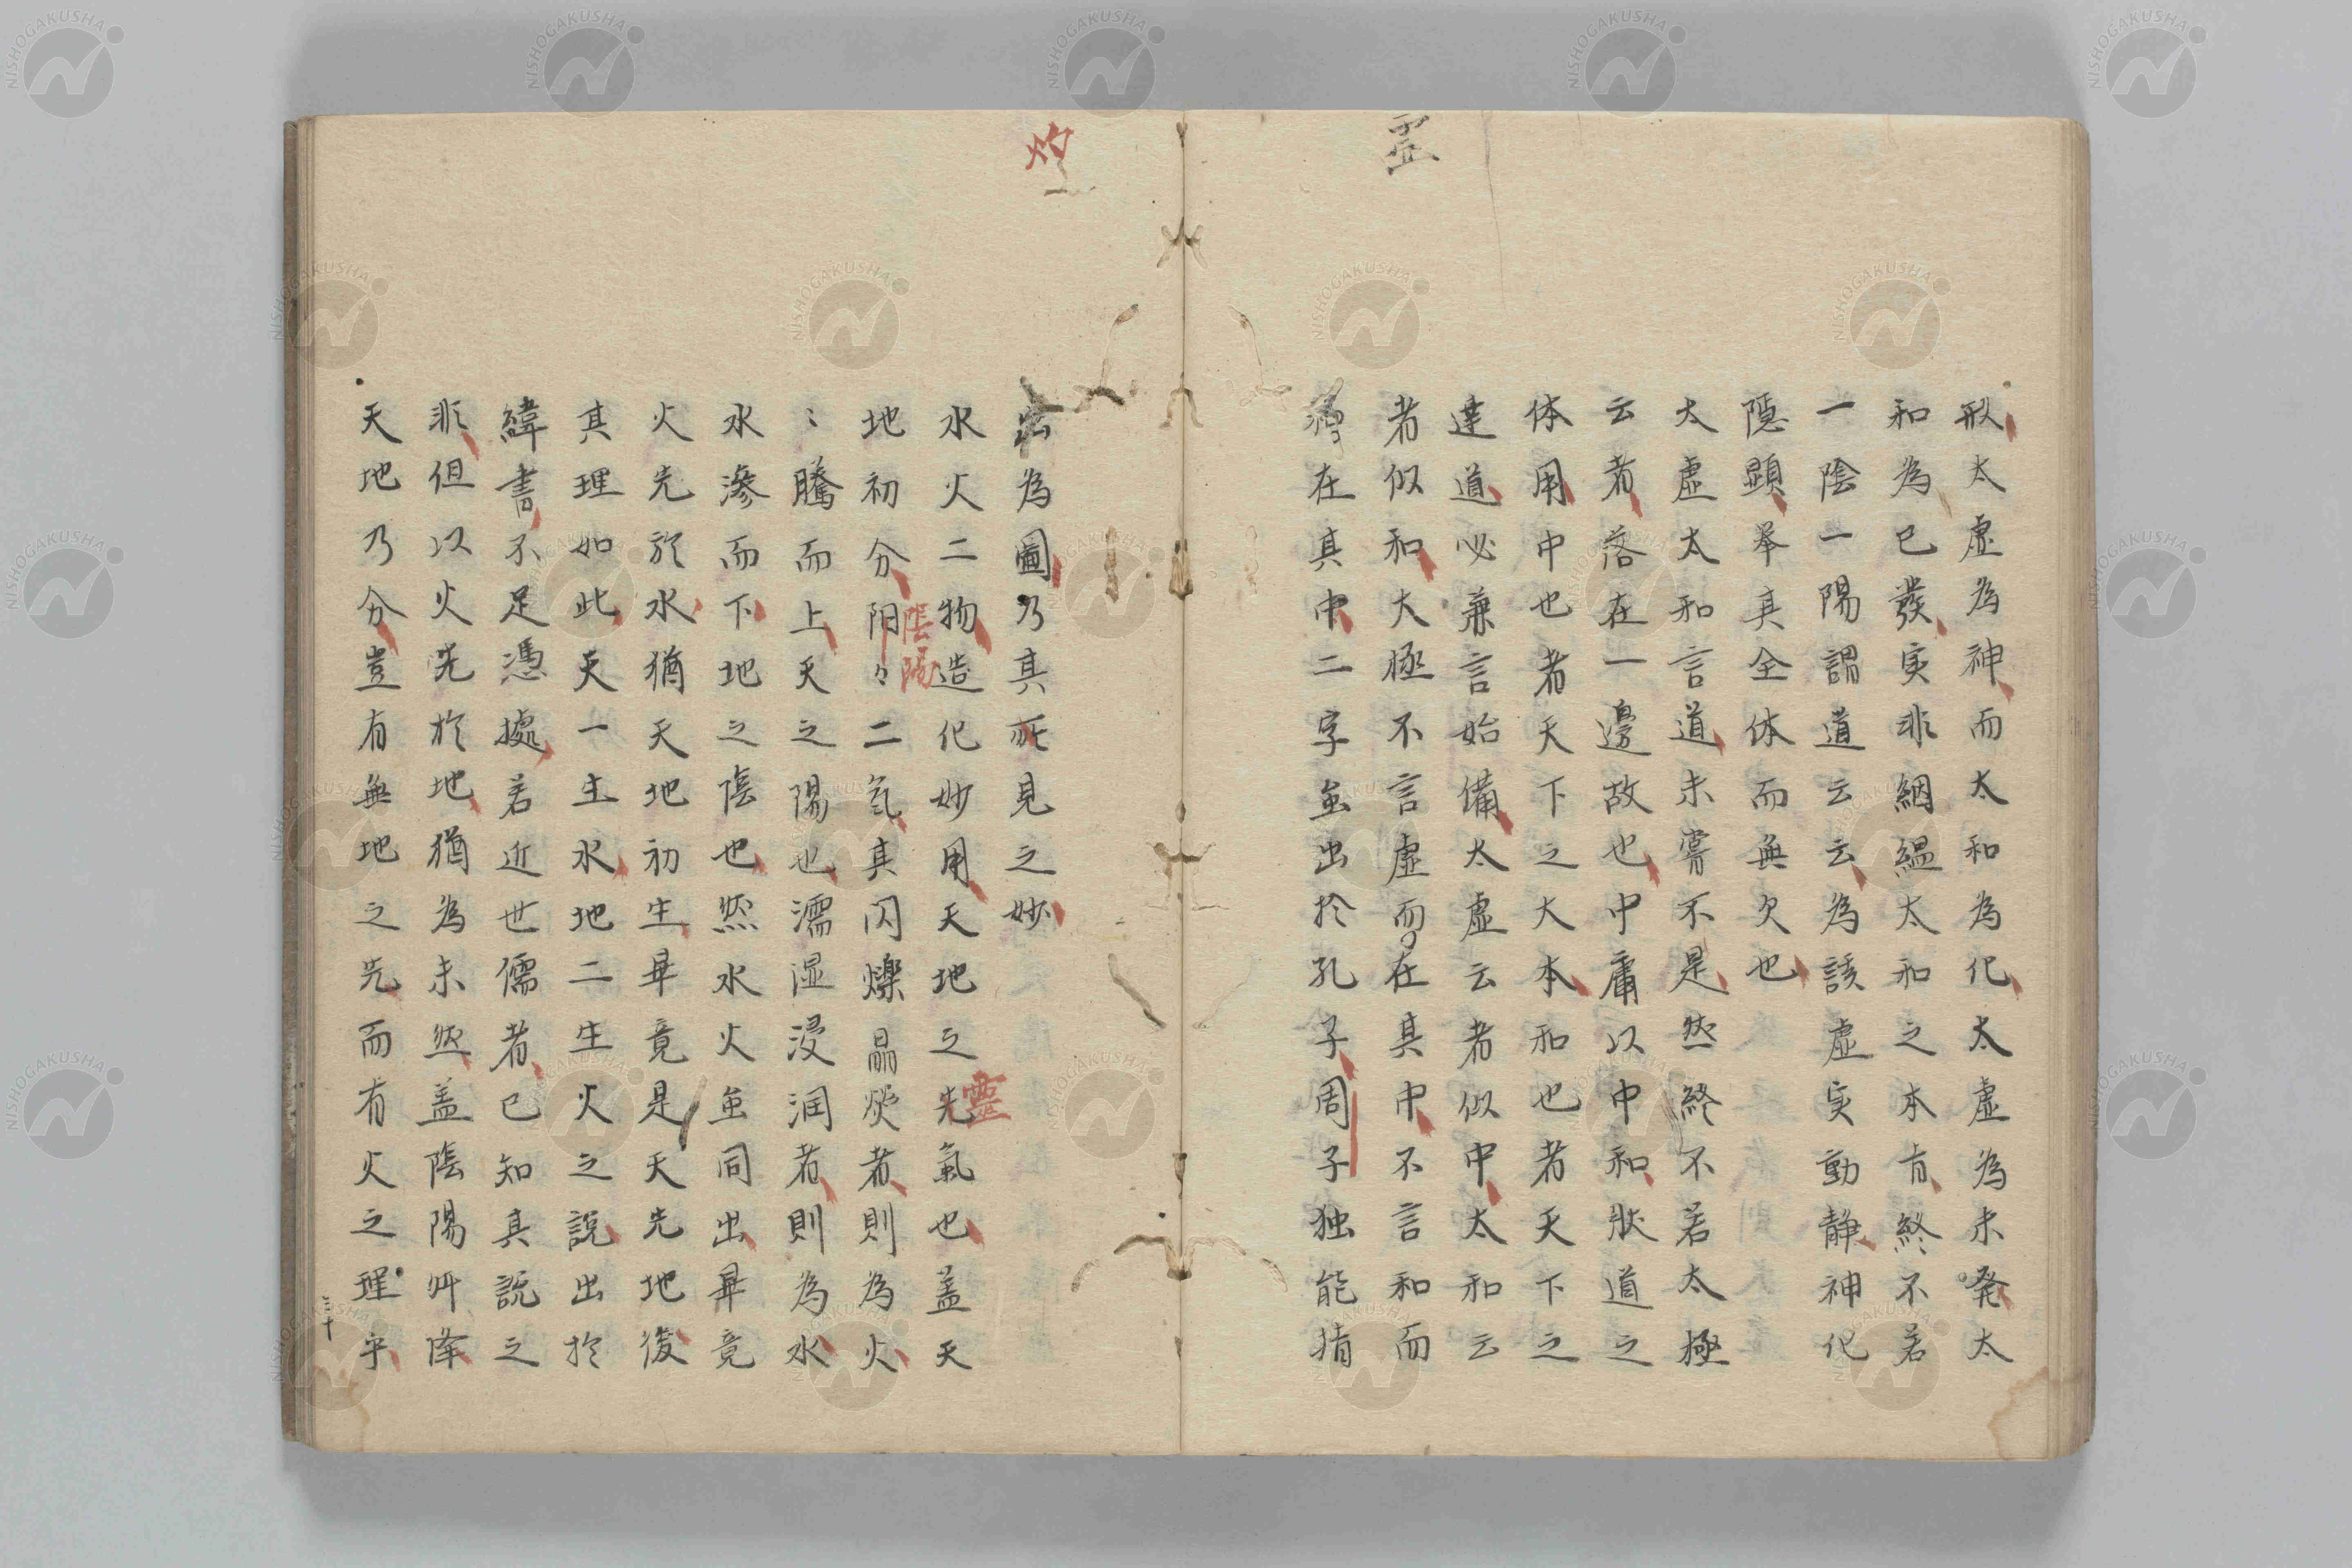 形太虚為神而太和為化太虚為未発太
和為已發実非絪縕太和之本旨終不若
一陰一陽謂道云云為該虚実動静神化
隠顕举其全体而無欠也
太虚太和言道未嘗不是然終不若太極
云者落在一邊故也中庸以中和状道之
体用中也者天下之大本和也者天下之
達道必兼言始備太虚云者似中太和云
者似和大極不言虚而在其中不言和而
和在其中二字並出於孔子周子独能揹
霊
出為圖乃其所見之妙
水火二物造化妙用天地之先氣也盖天
地初分阳々二氣其闪爍晶熒者則為火
〻騰而上天之陽也濡湿浸润者則為水
水滲而下地之陰也然水火並同出畢竟
火先於水猶天地初生畢竟是天先地後
其理如此天一生水地二生火之說出於
緯書不足憑據若近世儒者已知其説之
非但以火先於地猶為未然盖陰陽升降
天地乃分豈有無地之先而有火之理乎
灼
陰陽
靈
三十
NISHOGAKUSHA